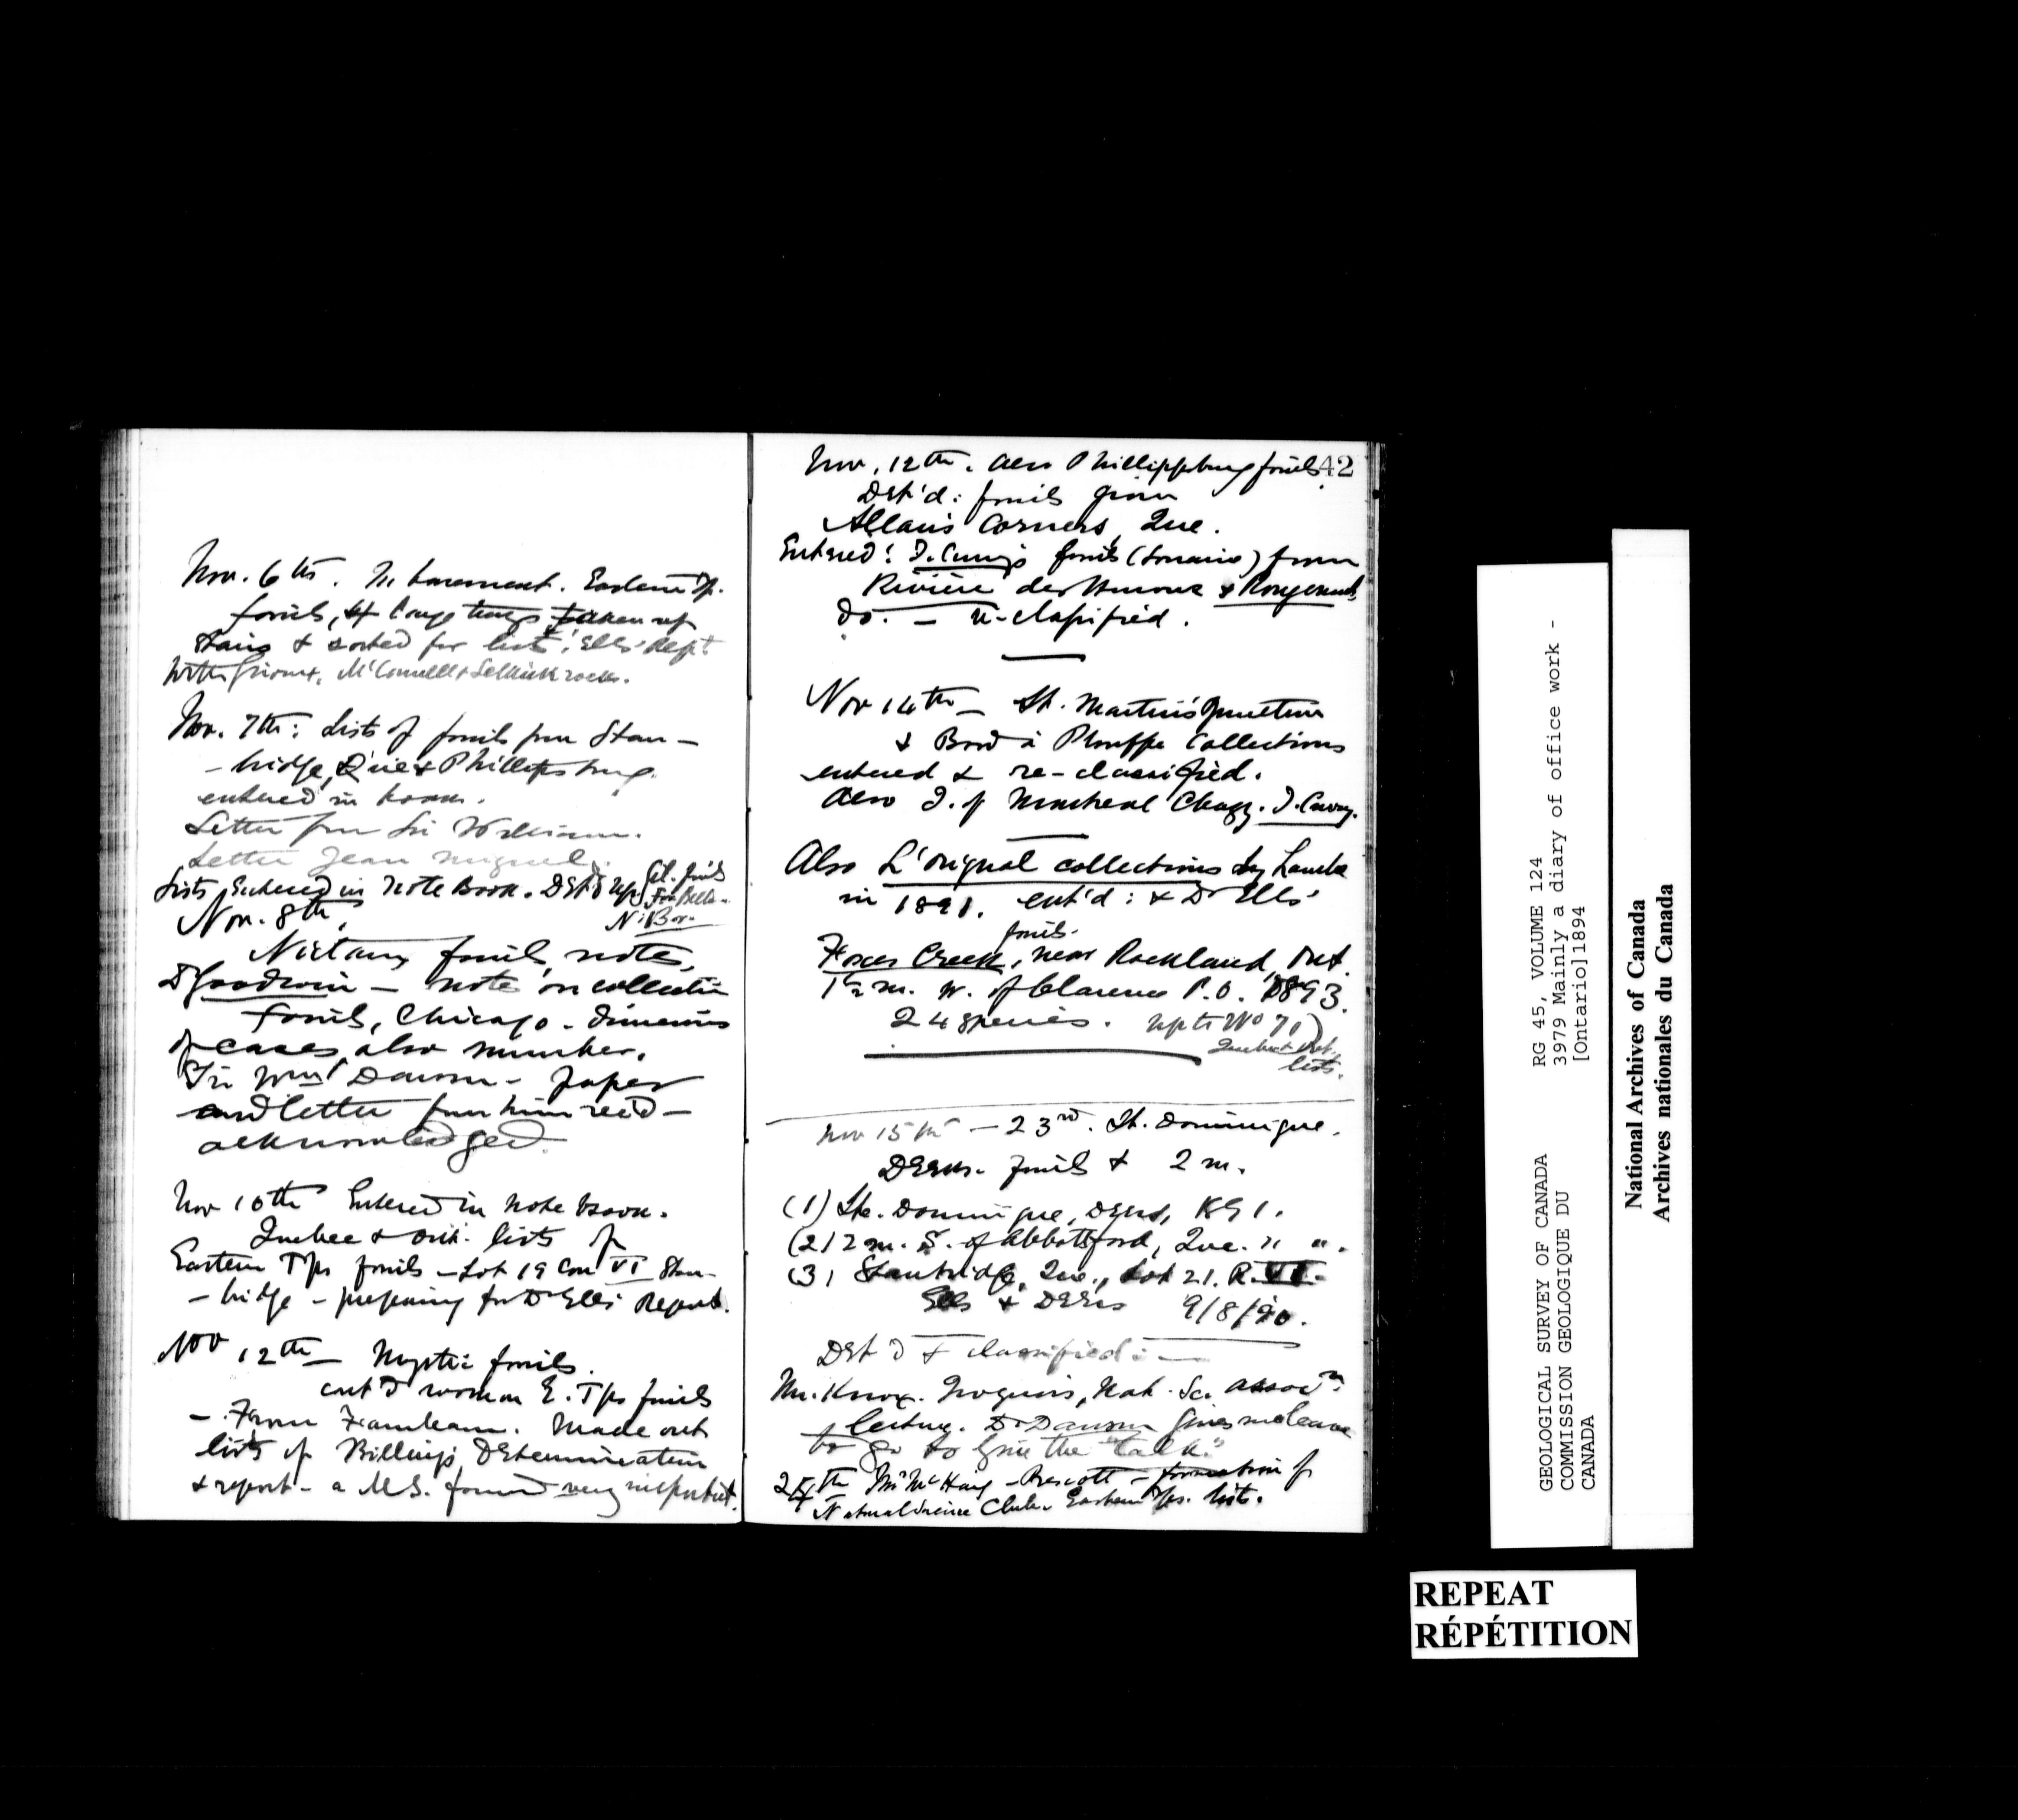 Nov. 6th. In basement. Eastern Tp.
fossils, 4 large trays taken up
stairs & sorted for lists. Ells' Rept.
McConnell & Selkirk rocks.
Nov. 7th: Lists of fossils from Stan-
-bridge, Que & Phillipsburg.
entered in book.
Letter from Sir William.
Letter Jean
Lists Entered in Note Book. Det'd
Nov. 8th,
Nictaux fossils, notes,
D Goodwin - note on collection
fossils, Chicago - dimensions
of cases, also number.
Sir Wm Dawson - paper
and letter from him rec'd -
acknowledged.
Nov 10th Entered in note book.
Quebec & Ont. lists of
Eastern Tps fossils - Lot 19 Con VI Stan-
-bridge - preparing for Dr Ells' Report.
Nov 12th - Mystic fossils.
ent'd work on E. Tps fossils
- From Farnham. Made out
lists of Billings' Determination
& report - a MS. found very important.
Nov. 12th. Also Phillipsburg fossils 42
Det'd: fossils from
Allan's Corners, Que.
Entered: fossils (Lorraine) from
Rivière des Hurons & Rougemont
do. - re-classified.
Nov 14th - St. Martin's Junction
& Bord à Plouffe Collections
entered & re-classified.
Also I. of Montreal Chazy.
Also L'Orignal collections by Lambe
in 1891. ent'd: & Dr Ells'
fossils.
Foxes Creek, near Rockland, Ont.
1½ m. W. of Clarence P.O. 1893.
24 species. up to No 71)
Quebec & Ont.
lists.
Nov 15th - 23rd. St. Dominique.
Deeks. fossils & 2 m.
(1) Ste. Dominique, Deeks, 1891.
(2) 2 m. S. of Abbottsford, Que. " ".
(3) Stanbridge, Que., Lot 21. R. VI.
Ells & Deeks 9/8/90.
Det'd & classified: -
Mr. Knox. Iroquois, Nat. Sc. Assocn.
lecture. Dr Dawson gives me leave
to go to give the "talk."
24th Mr McHaig - Prescott - formation of
Natural Science Club. Eastern Tps. lists.
RG 45, VOLUME 124
3979 Mainly a diary of office work -
[Ontario]1894
GEOLOGICAL SURVEY OF CANADA
COMMISSION GEOLOGIQUE DU
CANADA
National Archives of Canada
Archives nationales du Canada
REPEAT
RÉPÉTITION